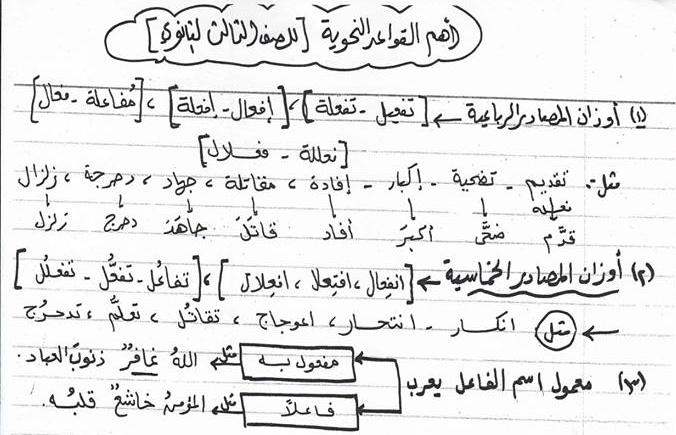 أهم القواعد النحوية [للصف الثالث الثانوي]
(١) أوزان المصادر الرباعية ← [تفعيل - تفعلة]، [إفعال - إفعلة]، [مُفاعلة - فعال]
[فعللة - فعلال]
مثل: تقديم - تضحية - إكبار - إفادة، مقاتلة، جهاد، دحرجة، زلزال
تفعلة
قدَّم ضحَّى أكبرَ أفاد قاتَلَ جاهَدَ دحرج زلزل
(٢) أوزان المصادر الخماسية ← [انفِعال، افتِعال، افعِلال]، [تفاعُل - تفعُّل - تفعلُل]
← مثل انكسار - انتحار، اعوجاج، تقاتُل، تعلُّم، تدحرُج
(٣) معمول اسم الفاعل يعرب
مفعول به مثل اللهُ غافرٌ ذنوبَ العباد.
فاعلاً مثل المؤمنُ خاشعٌ قلبُه.